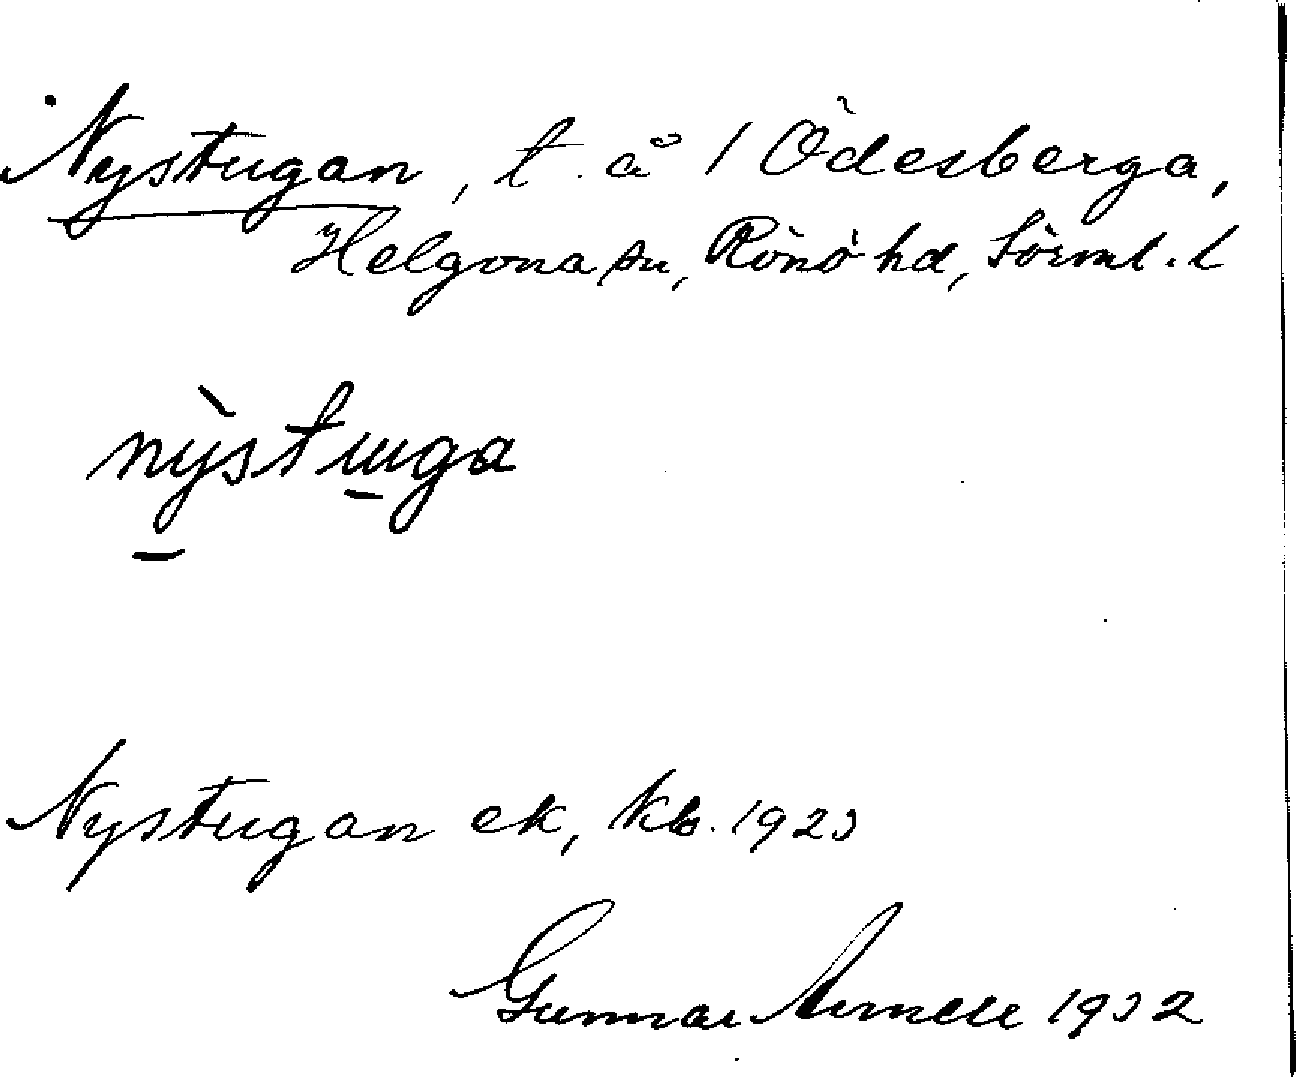 Nystugan, t. å 1 Ödesberga,
Helgona sn, Rönö hd, Sörml. l
nỳstuga
Nystugan ek, kb. 1923
Gunnar Arnell 1932